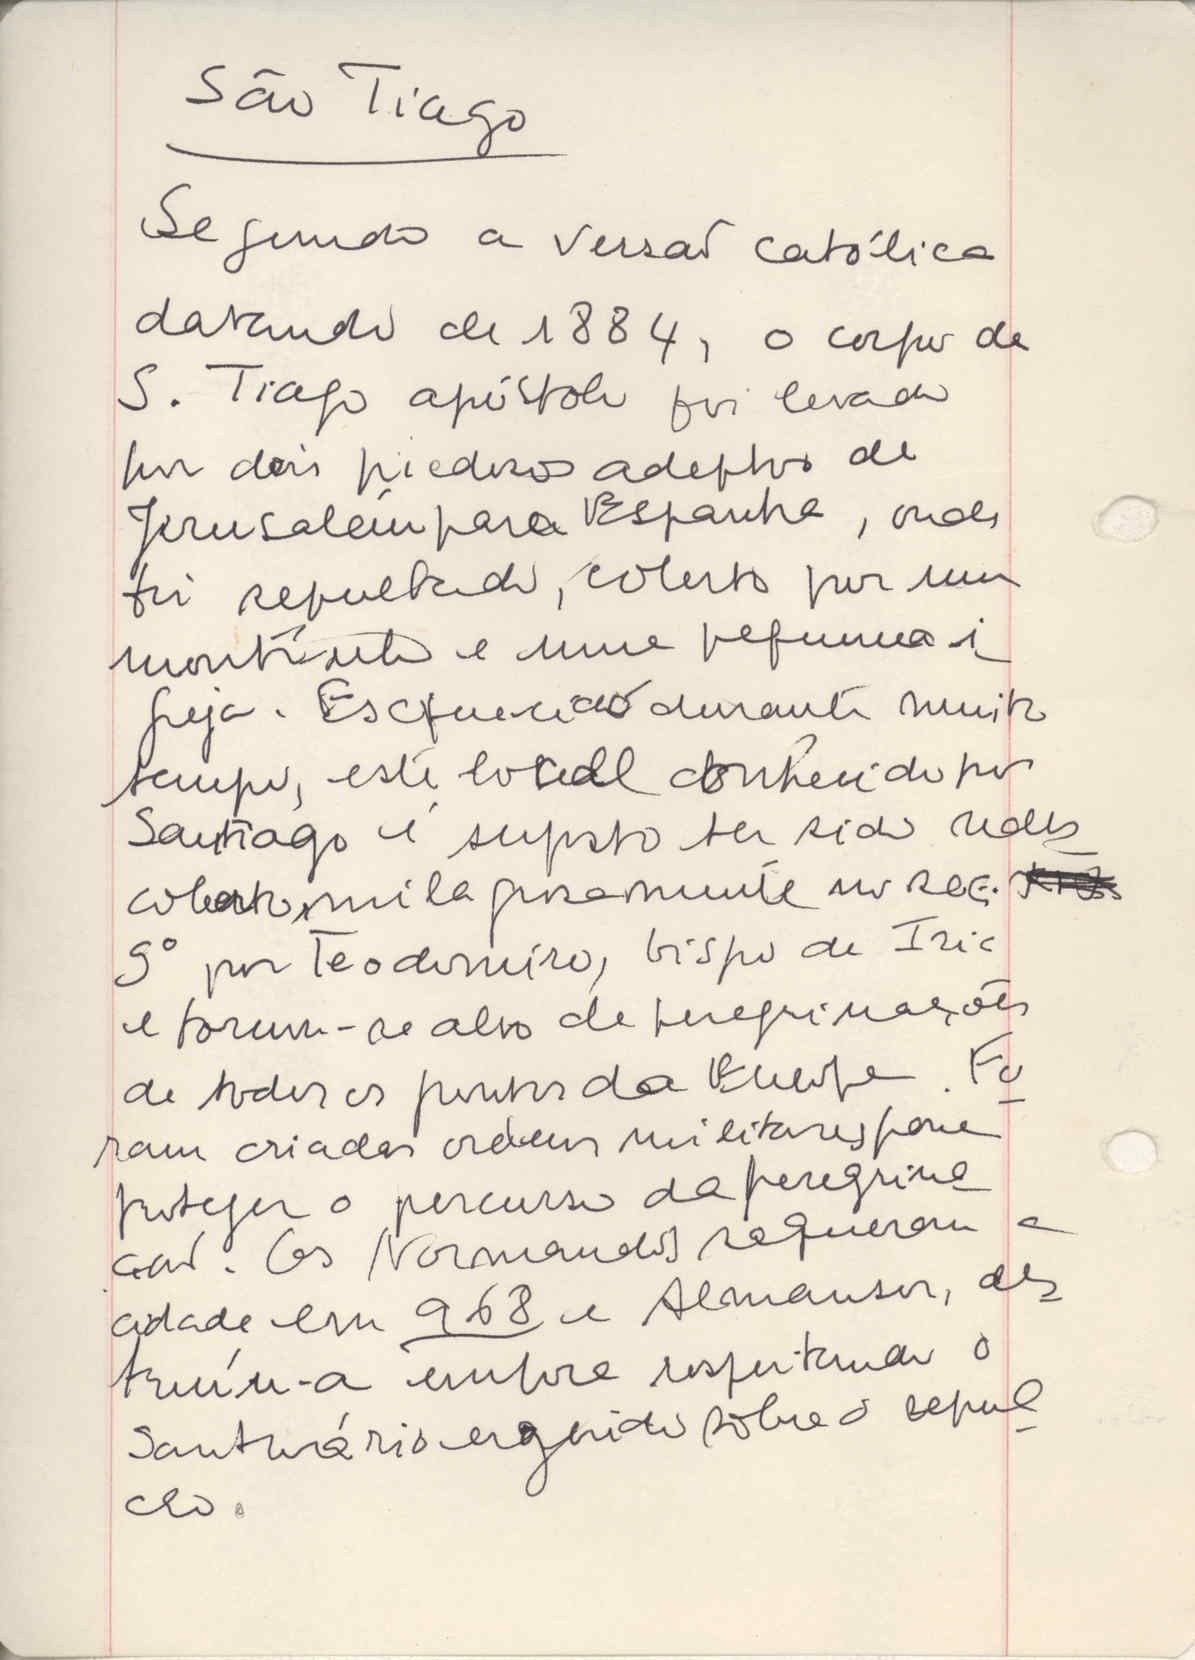 São Tiago
Segundo a versão católica
datando de 1884, o corpo de
S. Tiago apóstolo foi levado
por dois piedosos adeptos de
Jerusalém para Espanha, onde
foi sepultado, coberto por um
e uma pequena i
greja. Esquecido durante muito
tempo, este local conhecido por
Santiago é suposto ter sido redes
coberto, milagrosamente no sec.
9º por Teodomiro, bispo de Iria
e tornou-se alvo de peregrinações
de todos os pontos da Europa. Fo
ram criadas ordens militares para
proteger o percurso da peregrina
ção. Os Normandos saquearam a
cidade em 968 e Almansor, des
truíu-a embora respeitando o
Santuário erguido sobre o sepul
cro.